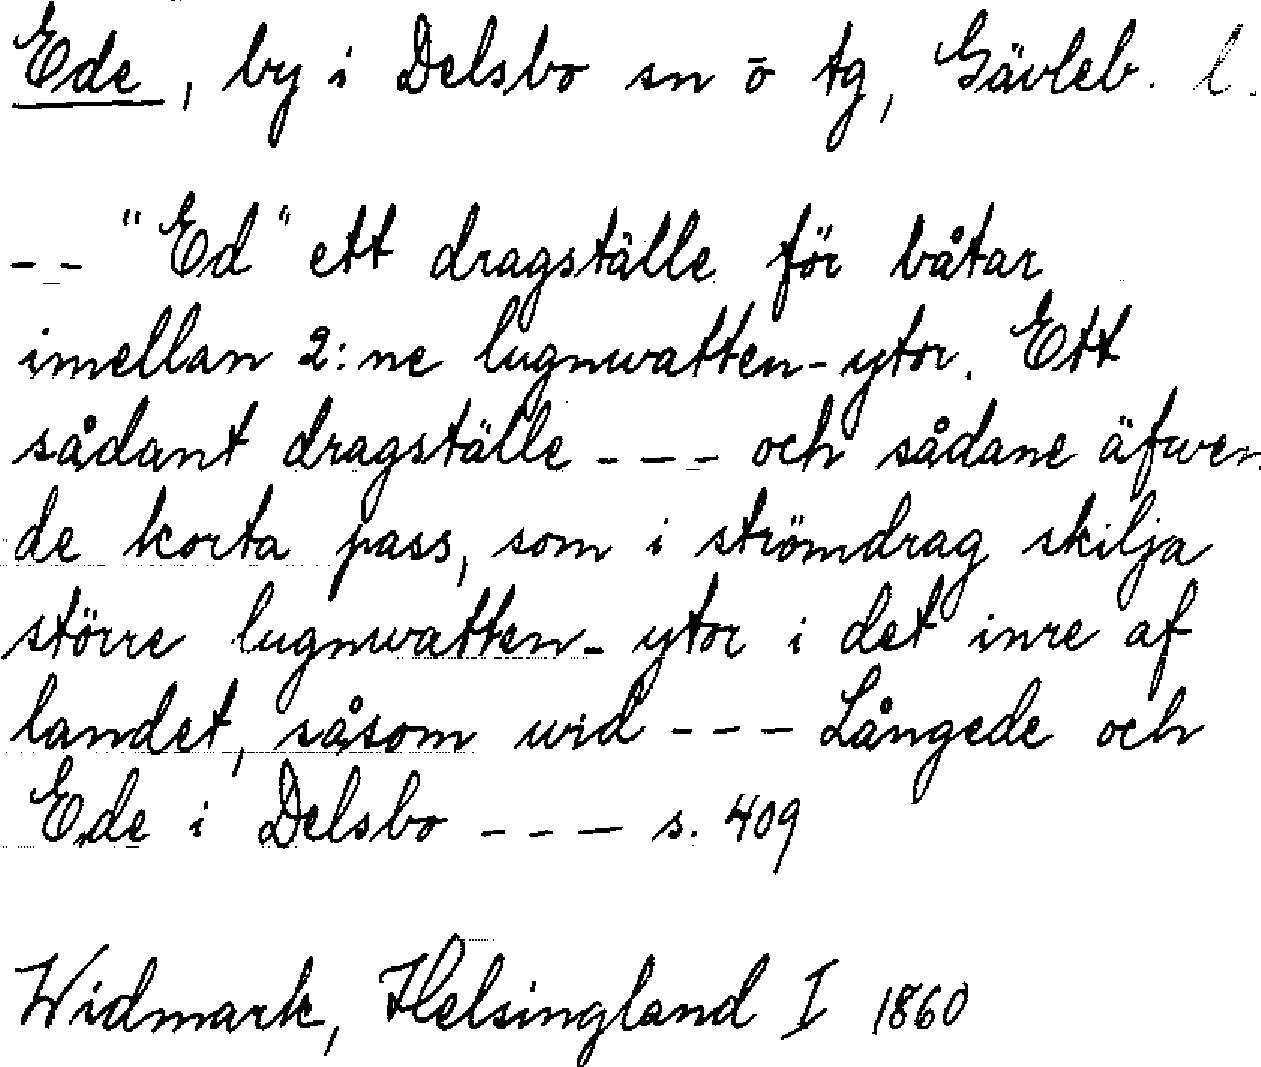 Ede, by i Delsbo sn o tg, Gävleb. l.
-- "Ed" ett dragställe för båtar
imellan 2:ne lugnwatten-ytor. Ett
sådant dragställe --- och sådane äfwen
de korta pass, som i strömdrag skilja
större lugnwatten-ytor i det inre af
landet, såsom wid --- Långede och
Ede i Delsbo --- s. 409
Widmark, Helsingland I 1860